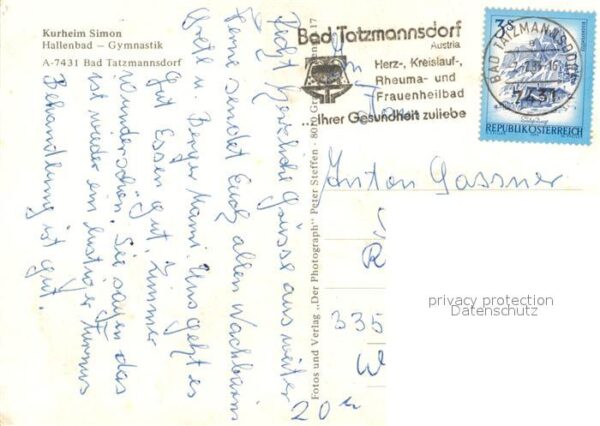 Kurheim Simon
Hallenbad — Gymnastik
A-7431 Bad Tatzmannsdorf
Recht herzliche Grüsse aus weiter
Ferne sendet Euch allen Wachbaim
Grete u. Berger Mami. Uns geht es
gut Essen gut Zimmer
wunderschön. Sie sagen das
ist wieder ein lustiger Turnus
Behandlung ist gut.
Fotos und Verlag „Der Photograph" Peter Steffen - 17
Bad Tatzmannsdorf
Austria
Herz-, Kreislauf-,
Rheuma- und
Frauenheilbad
...Ihrer Gesundheit zuliebe
3s
REPUBLIK ÖSTERREICH
BAD TATZMANNSDORF
7431
Anton Gassner
R
335
20
privacy protection
Datenschutz